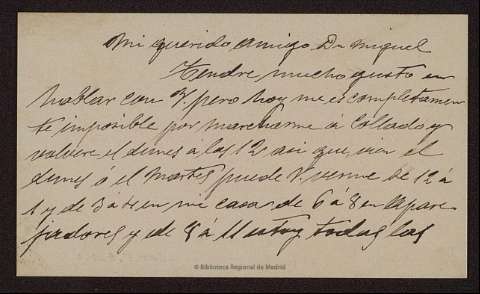 Mi querido amigo Dn Miguel
Tendre mucho gusto en
hablar con V. pero hoy me es completamen
te imposible por marcharme á Collado y
volvere el lunes a las 12 asi que, el
lunes ó el Martes puede V. verme de 12 á
1 y de 3 a 4 en mi casa de 6 á 8 en Apare
jadores y de 8 á 11 estoy todas las
© Biblioteca Regional de Madrid